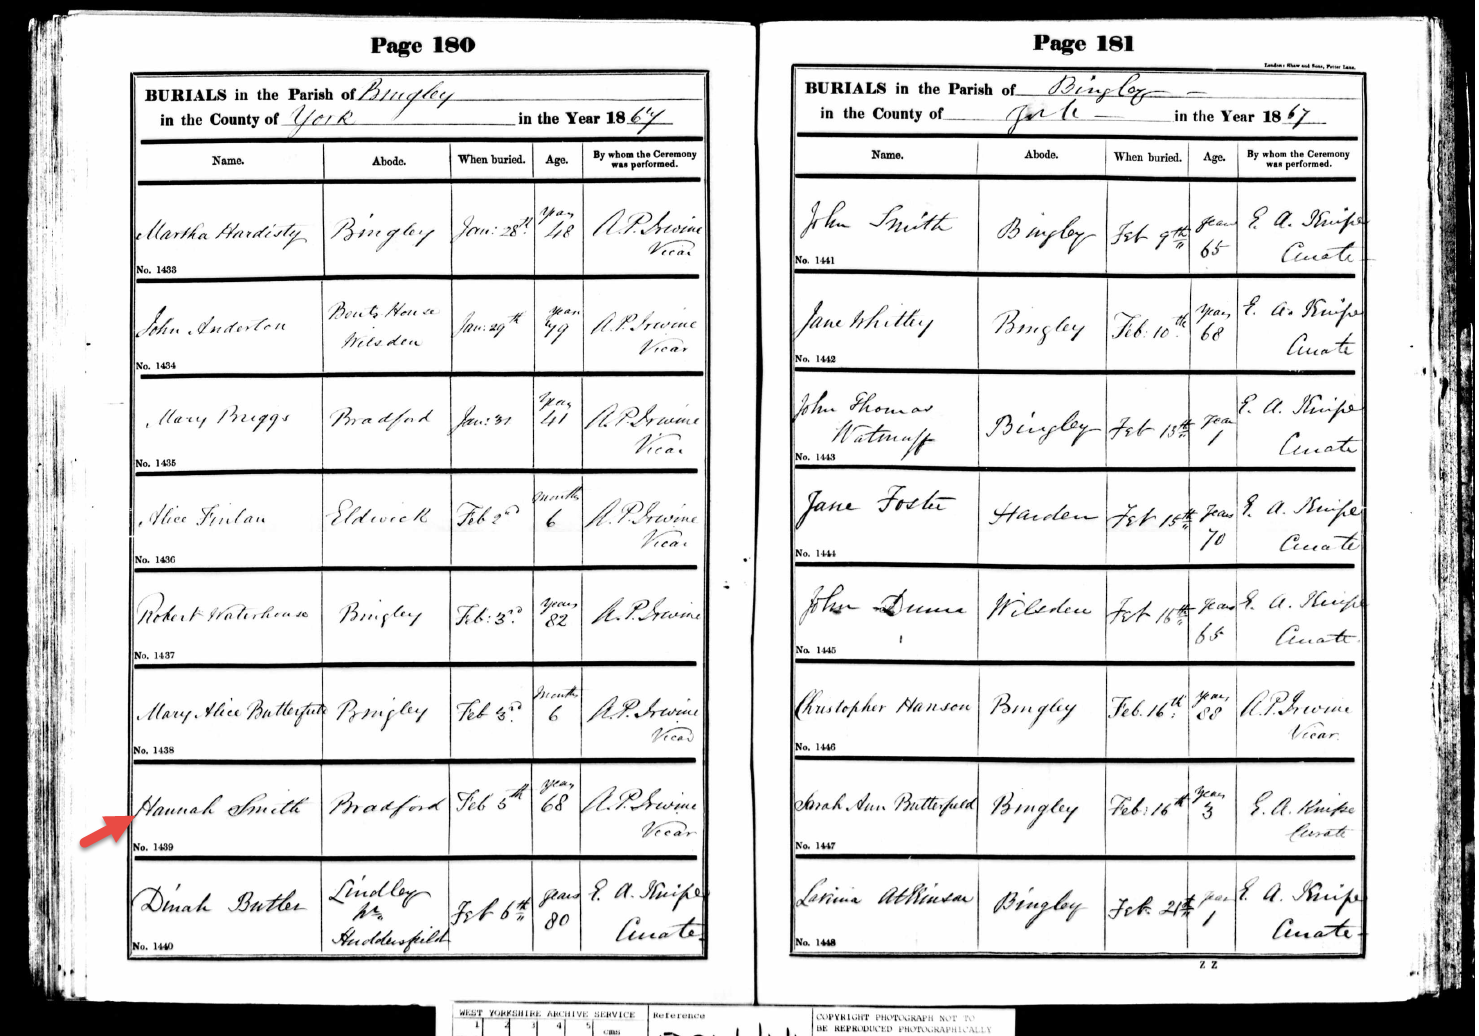 Page 180
BURIALS in the Parish of Bingley
in the County of York in the Year 1867
Name. Abode. When buried. Age. By whom the Ceremony was performed.
Martha Hardisty Bingley Jan: 28th. years 48 A.P. Irwine Vicar
No. 1433
John Anderton Bents House Wilsden Jan: 29th years 79 A.P. Irwine Vicar
No. 1434
Mary Briggs Bradford Jan: 31 Years 41 A.P. Irwine Vicar
No. 1435
Alice Finlan Eldwick Feb 2nd months 6 A.P. Irwine Vicar
No. 1436
Robert Waterhouse Bingley Feb: 3rd. years 82 A.P. Irwine
No. 1437
Mary Alice Butterfield Bingley Feb 3rd. Months 6 A.P. Irwine Vicar
No. 1438
Hannah Smith Bradford Feb 5th years 68 A.P. Irwine Vicar
No. 1439
Dinah Butler Lindley nr Huddersfield Feb 6th years 80 E. A. Knipe Curate
No. 1440
Page 181
London: Shaw and Sons, Fetter Lane.
BURIALS in the Parish of Bingley
in the County of York in the Year 1867
Name. Abode. When buried. Age. By whom the Ceremony was performed.
John Smith Bingley Feb 9th years 65 E. A. Knipe Curate
No. 1441
Jane Whitley Bingley Feb. 10th. Years 68 E. A. Knipe Curate
No. 1442
John Thomas Watmuff Bingley Feb 13th Year 1 E. A. Knipe Curate
No. 1443
Jane Foster Harden Feb 15th Years 70 E. A. Knipe Curate
No. 1444
John Wilsden Feb 16th Years 65 E. A. Knipe Curate
No. 1445
Christopher Hanson Bingley Feb. 16th. years 88 A.P. Irwine Vicar
No. 1446
Sarah Ann Butterfield Bingley Feb: 16th Years 3 E. A. Knipe Curate
No. 1447
Lavinia Atkinson Bingley Feb. 21st year 1 E. A. Knipe Curate
No. 1448
Z Z
WEST YORKSHIRE ARCHIVE SERVICE
1 2 3 4 5
cms
Reference
COPYRIGHT PHOTOGRAPH NOT TO
BE REPRODUCED PHOTOGRAPHICALLY